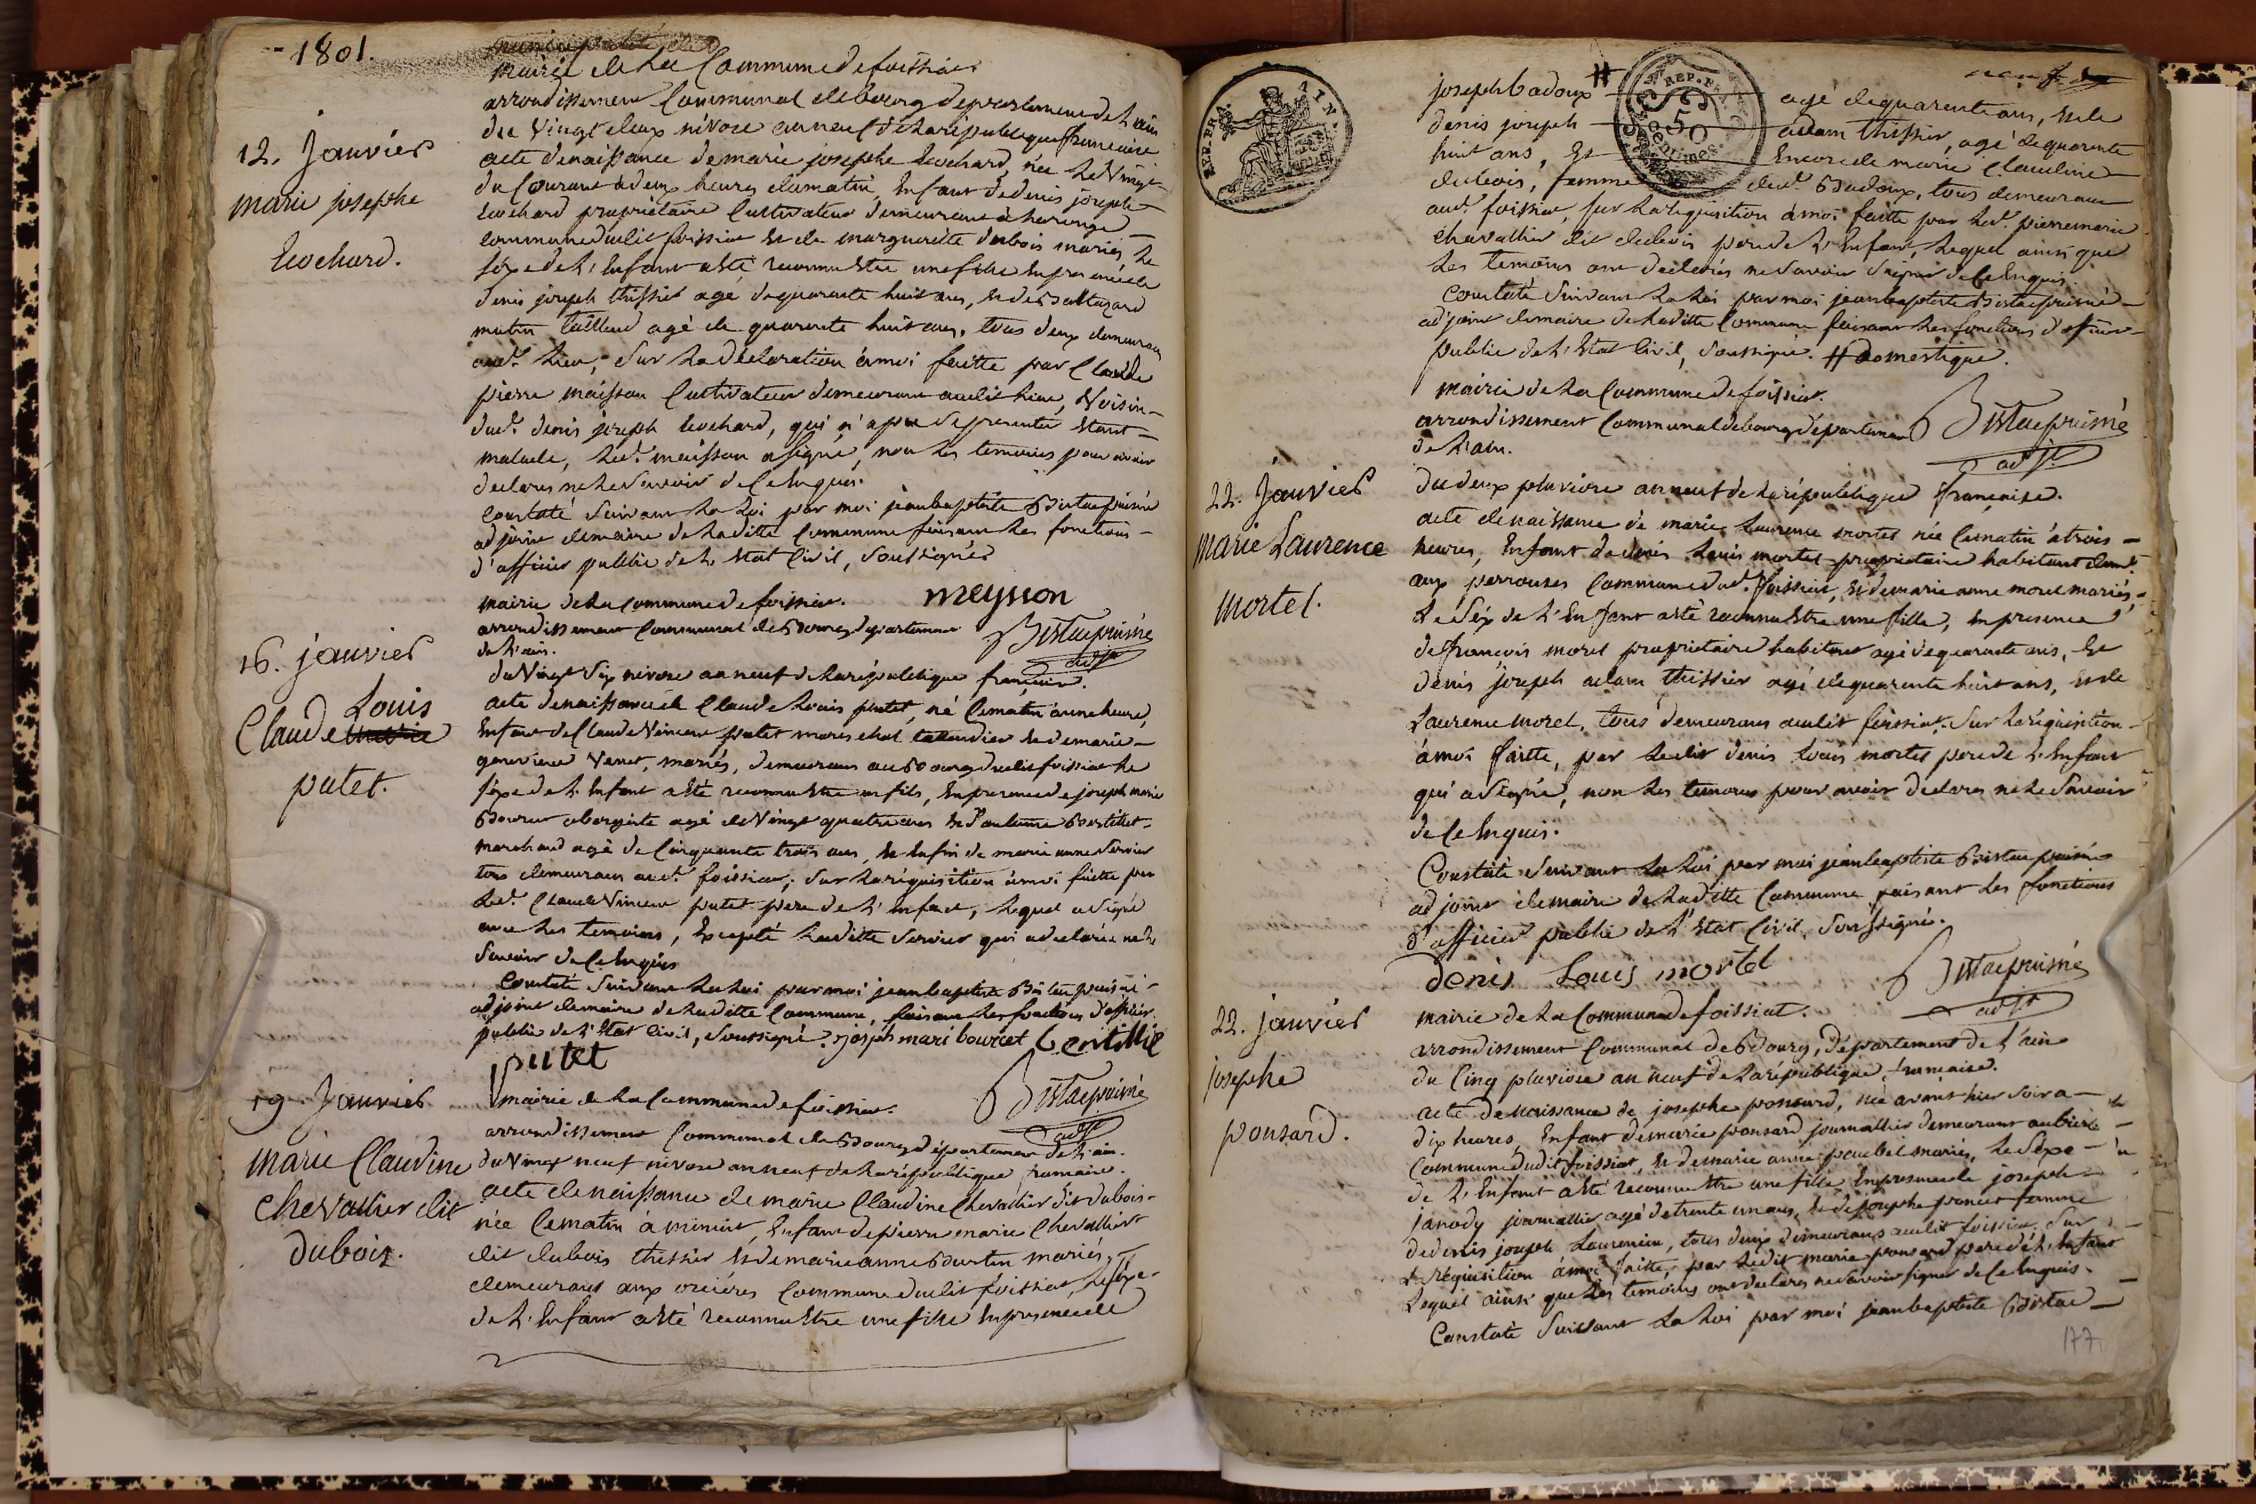 - 1801.
mairie de la Commune de foissiat
arrondissement Communal de bourg département de l'ain
du vingt deux nivose an neuf de la république française
12. Janvier
marie josephe
acte de naissance de marie josephe , née le vingt
du Courant à deux heures du matin, Enfant de denis joseph
propriétaire Cultivateur demeurant à
commune dudit foissiat Et de marguerite dubois mariés, le
séxe de l'Enfant a été reconnu Etre une fille En presence de
denis joseph thissier agé de quarante huit ans, et de Baltazard
mutin tailland agé de quarante huit ans, tous deux demeurans
aud. lieu, Sur la déclaration à moi faitte par Claude
pierre maisson Cultivateur demeurant audit lieu, Voisin
dud. denis joseph , qui n'a pu se presenter Etant
malade, led. maisson a signé, non les temoins pour avoir
declarés ne le savoir de Ce Enquis.
Constaté Suivant la Loi par moi jean baptiste Bistac puisné
adjoint du maire de laditte Commune faisant les fonctions
d'officier public de l'Etat Civil, Soussigné
meysson
Bistac puisné
adjt
mairie de la Commune de foissiat.
arrondissement Communal de Bourg département
de l'ain.
16. janvier
Claude Louis
putet.
du Vingt Six nivose an neuf de la république française.
acte de naissance de Claude Louis putet, né Cematin à une heure,
Enfant de Claude Vincent putet mareschal taillandier et de marie
genevieve Venet, mariés, demeurans au Bourg dudit foissiat le
séxe de l'Enfant a été reconnu Etre un fils, En presence de joseph marie
Bourcet aubergiste agé de Vingt quatre ans Et
marchand agé de Cinquante trois ans, Et Enfin de marie anne Servier
tous demeurans aud. foissiat, Sur la réquisition à moi faitte par
led. Claude Vincent putet pere de l'Enfant, lequel a signé
avec les temoins, Excepté laditte Servier qui a declarée ne le
Savoir de Ce Enquis
Constaté Suivant la Loi par moi jean baptiste Bistac puisné
adjoint du maire de laditte Commune, faisant les fonctions d'officier
public de l'Etat Civil, Soussigné. joseph mari bourcet
putet
Bistac puisné
adjt
mairie de la Commune de foissiat.
arrondissement Communal de Bourg département de l'ain.
19 Janvier
marie Claudine
chevallier dit
dubois.
du Vingt neuf nivose an neuf de la république française.
acte de naissance de marie Claudine Chevallier dit dubois
née Cematin à minuit, Enfant de pierre marie Chevallier
dit dubois thissier Et de marie anne Bourtin mariés,
demeurans aux Commune dudit foissiat, le séxe
de l'Enfant a été reconnu Etre une fille En presence de
joseph badoux # agé de quarante ans, Et de
denis joseph adam thissier, agé de quarante
huit ans, Et Encore de marie Claudine
dubois, femme dud. Badoux, tous demeurans
aud. foissiat, Sur la réquisition à moi faitte par led. pierre marie
chevallier dit dubois pere de l'Enfant, lequel ainsi que
les temoins ont declarés ne Savoir Signer de Ce Enquis.
Constaté Suivant la Loi par moi jean baptiste Bistac puisné
adjoint du maire de laditte Commune faisant les fonctions d'officier
public de l'Etat Civil, Soussigné. # domestique.
REP. FRA.
50
Centimes
REP. FRA. AIN.
Bistac puisné
adjt
mairie de la Commune de foissiat.
arrondissement Communal de bourg département
de l'ain.
22. Janvier
Marie Laurence
mortel.
du deux pluviose an neuf de la république française.
acte de naissance de marie Laurence mortel née Cematin à trois
heures, Enfant de denis Louis mortel propriétaire habitant demt
aux perrouses Commune dud. foissiat, Et de marie anne morel mariés,
le Séx de l'Enfant a été reconnu Etre une fille, En presence
de françois morel propriétaire habitant agé de quarante ans, Et
denis joseph adam thissier agé de quarante huit ans, Et de
Laurence morel, tous demeurans audit foissiat. Sur la réquisition
à moi faitte, par ledit denis Louis mortel pere de l'Enfant
qui a Signé, non les temoins pour avoir declarés ne le Savoir
de Ce Enquis.
Constaté Suivant la Loi par moi jean baptiste Bistac puisné
adjoint du maire de laditte Commune faisant les fonctions
d'officier public de l'Etat Civil, Soussigné.
Denis Louis mortel
Bistac puisné
adjt
mairie de la Commune de foissiat.
arrondissement Communal de Bourg, Département de l'ain
22. janvier
josephe
ponsard.
du Cinq pluviose an neuf de la république française.
acte de naissance de josephe ponsard, née avant hier soir a
dix heures, Enfant de marie ponsard journallier demeurant
Commune dudit foissiat, Et de marie anne mariés, le Séxe
de l'Enfant a été reconnu Etre une fille En presence de joseph
janody journallier agé de trente un ans, Et de josephe poncet femme
de denis joseph Laurencin, tous deux demeurans audit foissiat. Sur
la réquisition à moi faitte, par ledit marie ponsard pere de l'Enfant
Lequel ainsi que les temoins ont declarés ne Savoir signer de Ce Enquis.
Constaté Suivant la Loi par moi jean baptiste Bistac
177